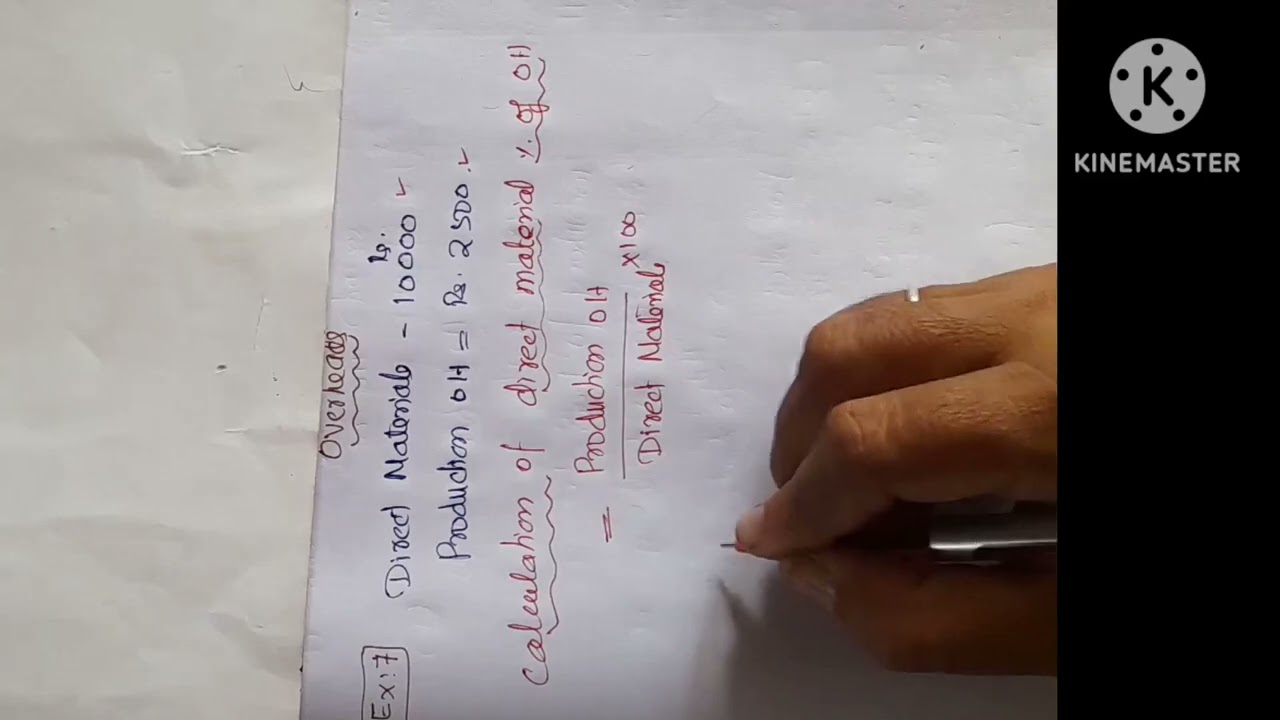 Overheads
Ex:7
Direct Materials - 10000
Rs.
Production OH = Rs. 2500.
Calculation of direct material % of OH
= Production OH
Direct Materials
×100
K
KINEMASTER